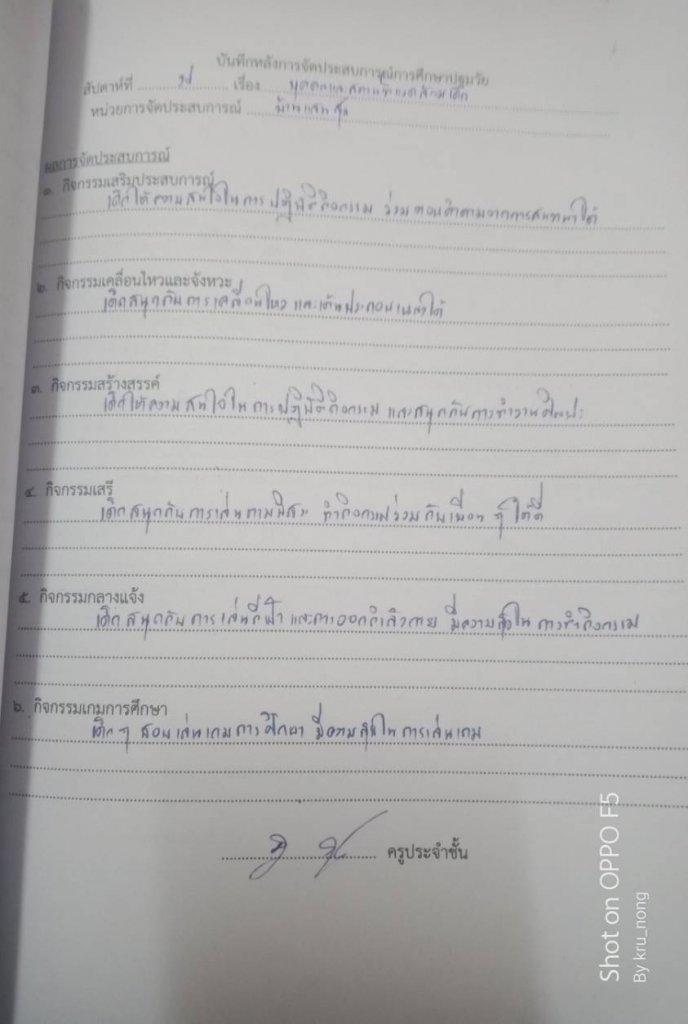 บันทึกหลังการจัดประสบการณ์การศึกษาปฐมวัย
สัปดาห์ที่ เรื่อง บุคคลและสถานที่แวดล้อมเด็ก
หน่วยการจัดประสบการณ์ บ้านแสนสุข
ผลการจัดประสบการณ์
๑. กิจกรรมเสริมประสบการณ์
เด็กให้ความสนใจในการปฏิบัติกิจกรรม ร่วมตอบคำถามจากการสนทนาได้
๒. กิจกรรมเคลื่อนไหวและจังหวะ
เด็กสนุกกับการเคลื่อนไหว และเต้นประกอบเพลงได้
๓. กิจกรรมสร้างสรรค์
เด็กให้ความสนใจในการปฏิบัติกิจกรรม และสนุกกับการทำงานศิลปะ
๔. กิจกรรมเสรี
เด็กสนุกกับการเล่นตามอิสระ ทำกิจกรรมร่วมกับเพื่อน ๆ ได้ดี
๕. กิจกรรมกลางแจ้ง
เด็กสนุกกับการเล่นกีฬา และการออกกำลังกาย มีความสุขในการทำกิจกรรม
๖. กิจกรรมเกมการศึกษา
เด็ก ๆ ชอบเล่นเกมการศึกษา มีความสุขในการเล่นเกม
ครูประจำชั้น
Shot on OPPO F5
By kru_nong